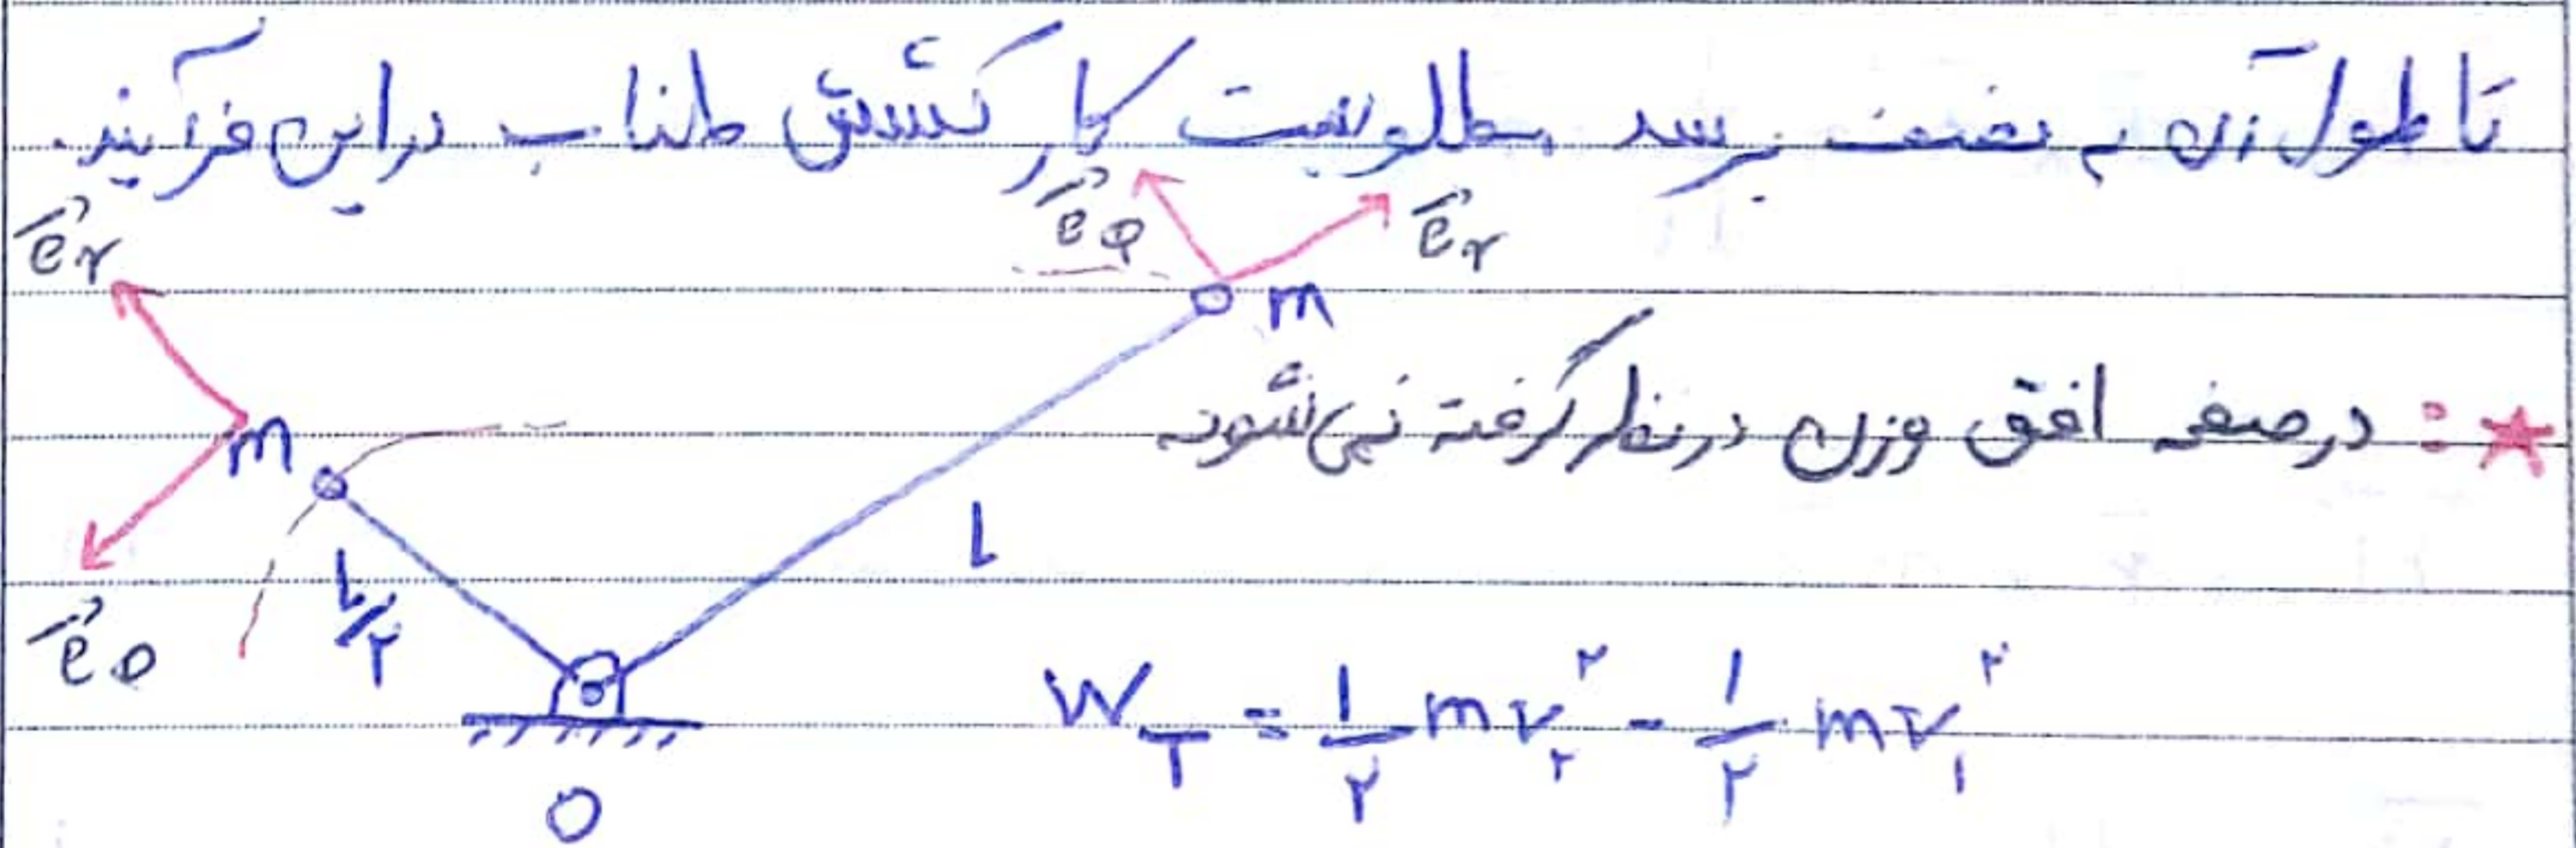 تا طول آن به نصف برسد مطلوبست کار کشش طناب در این فرآیند.
e⃗r e⃗θ e⃗r
m
m
★: در صفحه افق وزن در نظر گرفته نمی شود
L
L/۲
e⃗θ
W_T = ۱/۲ mv₂^۲ - ۱/۲ mv₁^۲
O